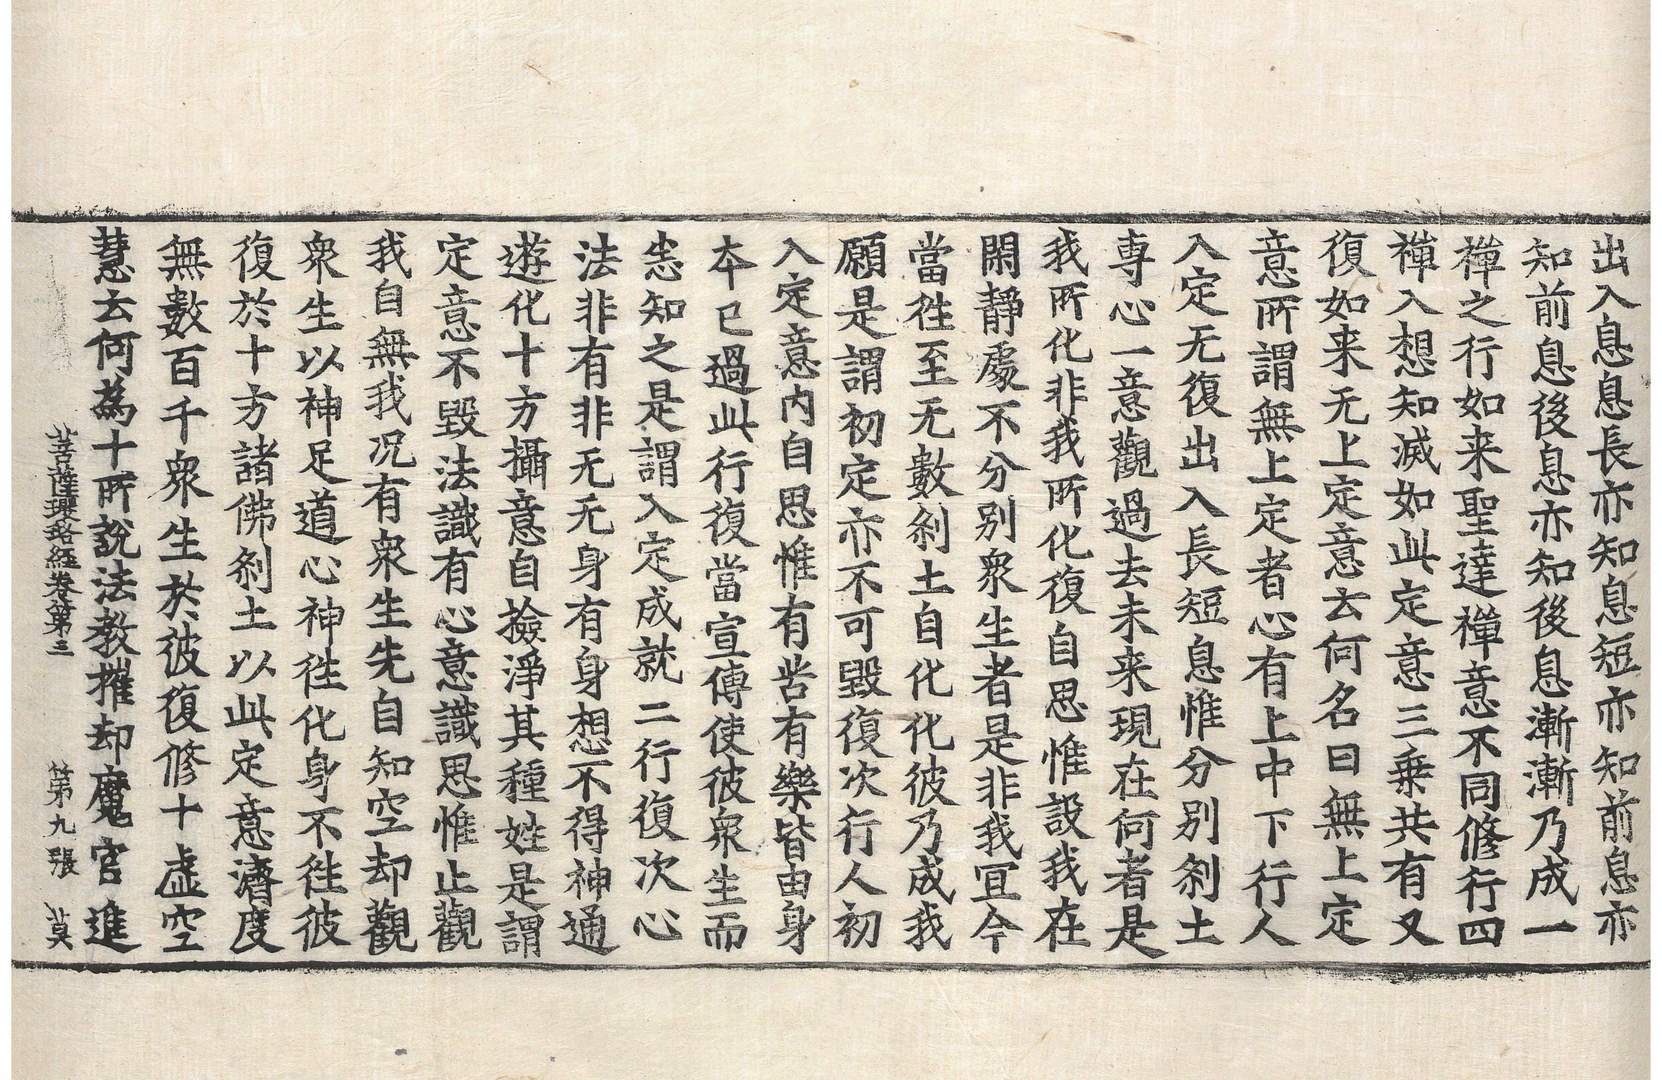 出入息息長亦知息短亦知前息亦
知前息後息亦知後息漸漸乃成一
禪之行如来聖達禪意不同修行四
禪入想知滅如此定意三乗共有又
復如来无上定意云何名曰無上定
意所謂無上定者心有上中下行人
入定无復出入長短息惟分別剎土
専心一意觀過去未来現在何者是
我所化非我所化復自思惟設我在
閑靜處不分別衆生者是非我冝今
當徃至无數剎土自化化彼乃成我
願是謂初定亦不可毀復次行人初
入定意内自思惟有苦有樂皆由身
本已過此行復當宣傳使彼衆生而
悉知之是謂入定成就二行復次心
法非有非无无身有身想不得神通
遊化十方攝意自撿淨其種姓是謂
定意不毀法識有心意識思惟止觀
我自無我况有衆生先自知空却觀
衆生以神足道心神徃化身不徃彼
復於十方諸佛剎土以此定意濟度
無數百千衆生於彼復修十虛空
慧云何為十所說法教摧却魔宫進
菩薩瓔珞經卷第三 第九張 莫